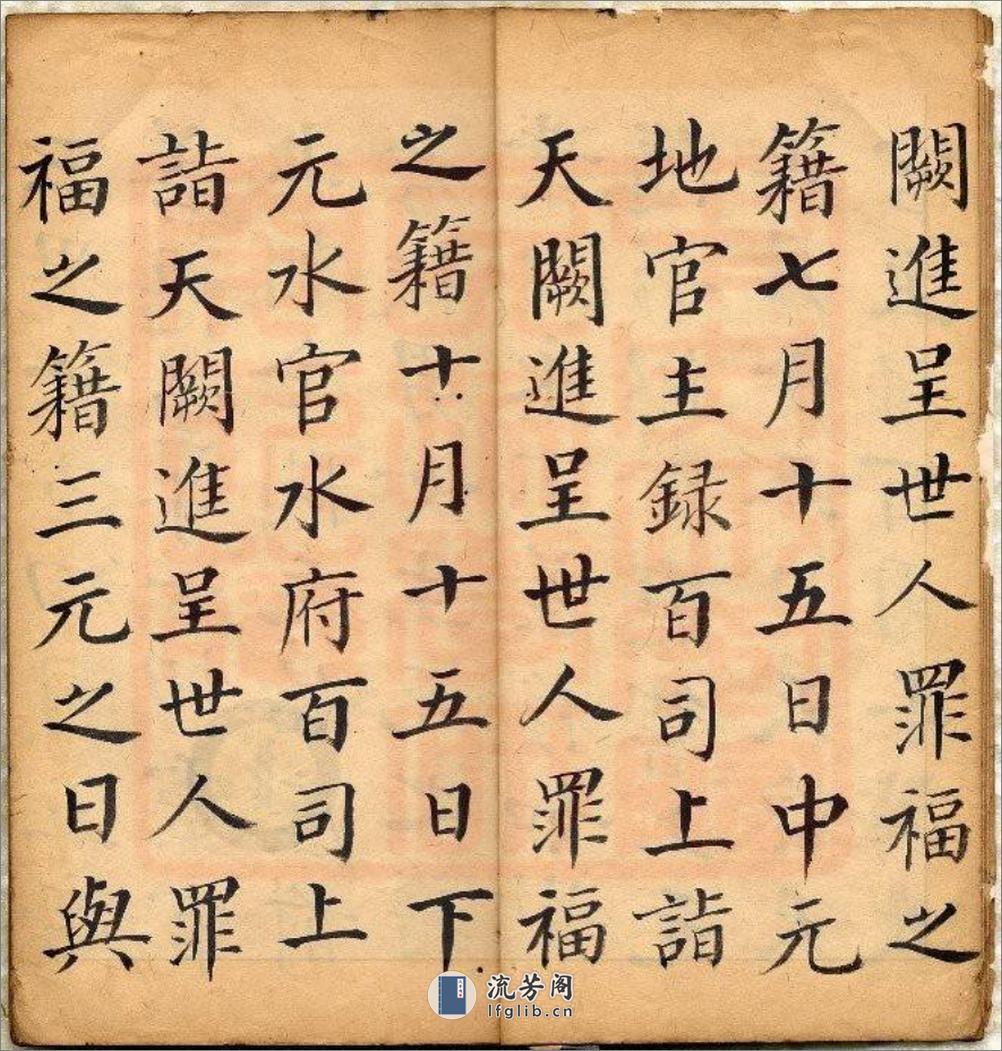 闕進呈世人罪福之
籍七月十五日中元
地官主録百司上詣
天闕進呈世人罪福
之籍十月十五日下
元水官水府百司上
詣天闕進呈世人罪
福之籍三元之日與
流芳阁
lfglib.cn